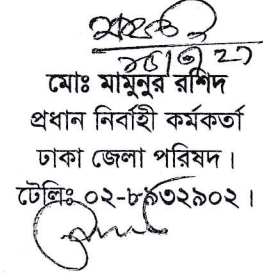 মোঃ মামুনুর রশিদ
প্রধান নির্বাহী কর্মকর্তা
ঢাকা জেলা পরিষদ।
টেলিঃ ০২-৮৯৩২৯০২।